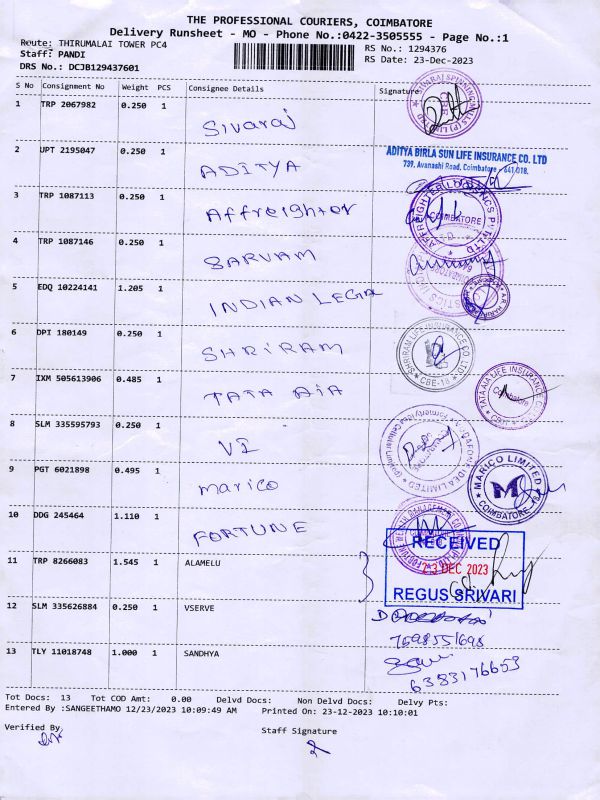 THE PROFESSIONAL COURIERS, COIMBATORE
Delivery Runsheet - MO - Phone No.:0422-3505555 - Page No.:1
Route: THIRUMALAI TOWER PC4
Staff: PANDI
DRS No.: DCJB129437601
RS No.: 1294376
RS Date: 23-Dec-2023
S No Consignment No Weight PCS Consignee Details Signature
1 TRP 2067982 0.250 1 Sivaraj
2 UPT 2195047 0.250 1 ADITYA
ADITYA BIRLA SUN LIFE INSURANCE CO. LTD
739, Avanashi Road, Coimbatore - 641 018.
3 TRP 1087113 0.250 1 Affreighter
AFFREIGHTER LOGISTICS PVT LTD
COIMBATORE
4 TRP 1087146 0.250 1 SARVAM
5 EDQ 10224141 1.205 1 INDIAN LEGAL
6 DPI 180149 0.250 1 SHRIRAM
SHRIRAM LIFE INSURANCE CO. LTD
CBE-18
7 IXM 505613906 0.485 1 TATA AiA
TATA AIA LIFE INSURANCE CO. LTD
Coimbatore
8 SLM 335595793 0.250 1 VI
9 PGT 6021898 0.495 1 marico
MARICO LIMITED
M
COIMBATORE
10 DDG 245464 1.110 1 FORTUNE
RECEIVED
23 DEC 2023
REGUS SRIVARI
11 TRP 8266083 1.545 1 ALAMELU
12 SLM 335626884 0.250 1 VSERVE
7598551698
13 TLY 11018748 1.000 1 SANDHYA
6383176653
Tot Docs: 13 Tot COD Amt: 0.00 Delvd Docs: Non Delvd Docs: Delvy Pts:
Entered By :SANGEETHAMO 12/23/2023 10:09:49 AM Printed On: 23-12-2023 10:10:01
Verified By
Staff Signature